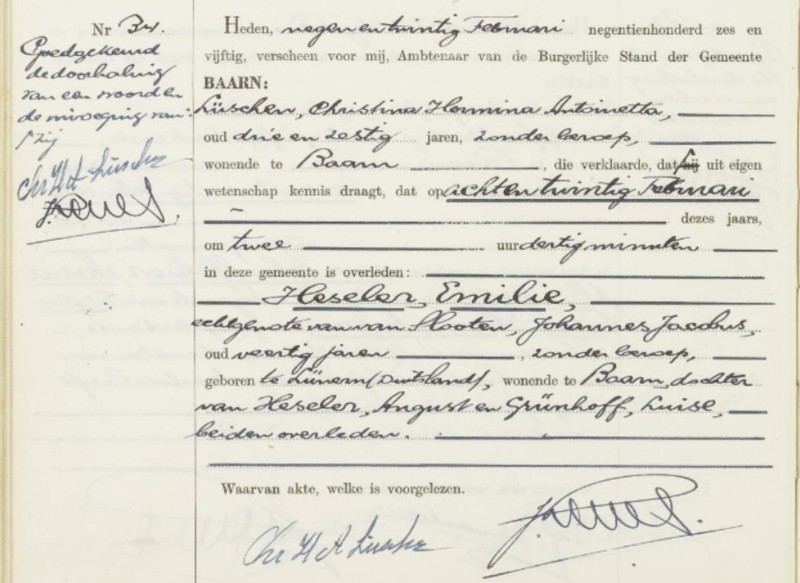 Nr 34.
Goedgekeurd
de doorhaling
van een woord en
de invoeging van:
"zij
Chr H A Lüschen
Heden, negen en twintig Februari negentienhonderd zes en
vijftig, verscheen voor mij, Ambtenaar van de Burgerlijke Stand der Gemeente
BAARN:
Lüschen, Christina Hermina Antoinetta,
oud drie en zestig jaren, zonder beroep,
wonende te Baarn, die verklaarde, dat hij uit eigen
wetenschap kennis draagt, dat op achtentwintig Februari
dezes jaars,
om twee uur dertig minuten
in deze gemeente is overleden:
Heseler, Emilie,
echtgenote van van Slooten, Johannes Jacobus,
oud veertig jaren, zonder beroep,
geboren te Lünern (Duitsland), wonende te Baarn, dochter
van Heseler, August en Grünhoff, Luise,
beiden overleden.
Waarvan akte, welke is voorgelezen.
Chr H A Lüschen